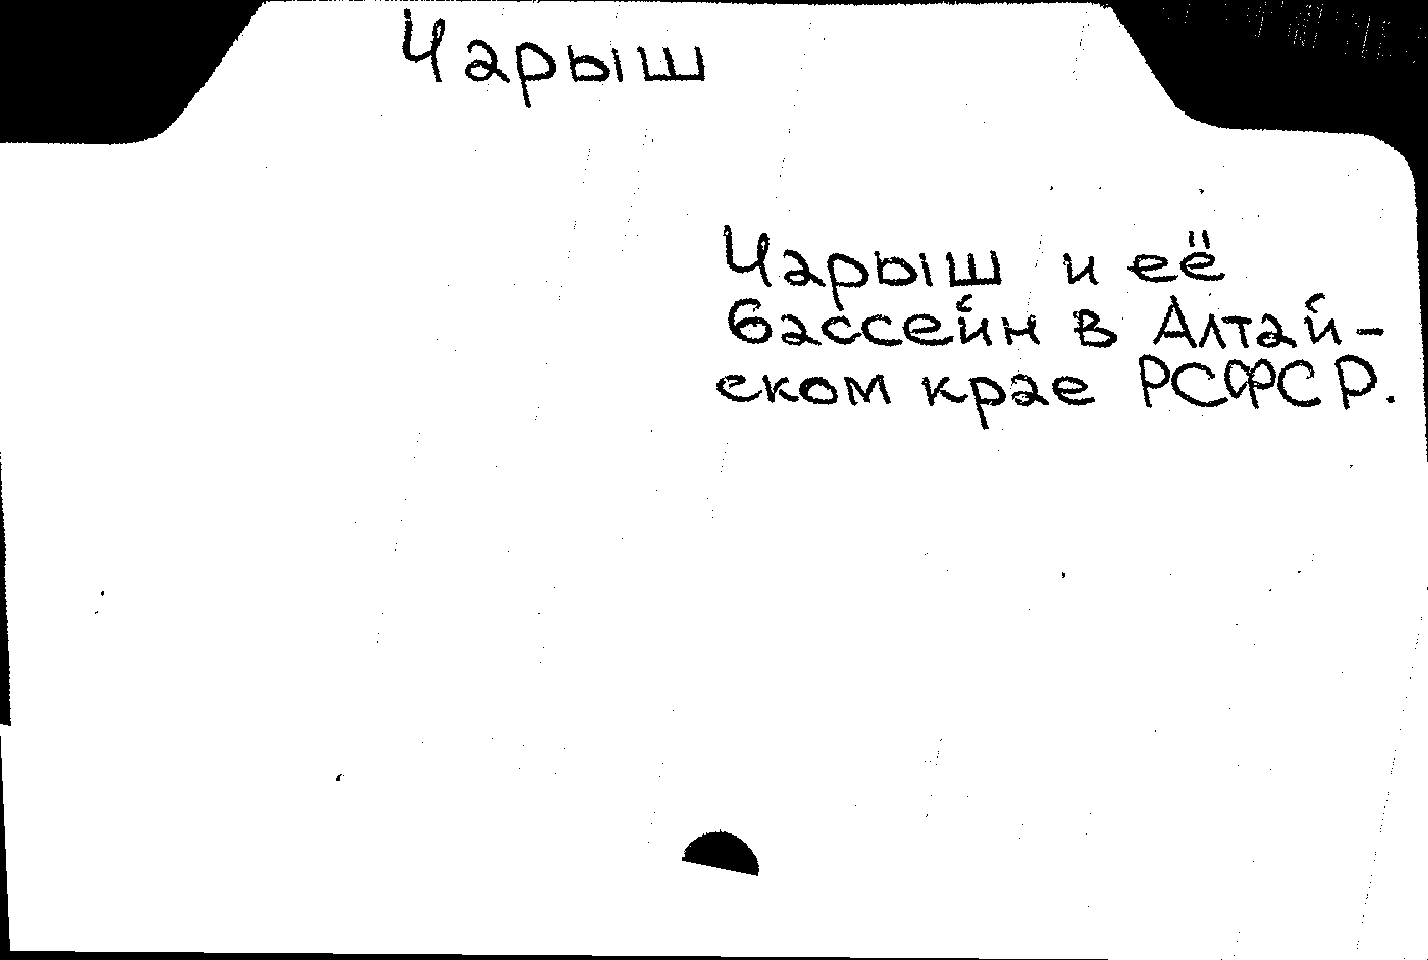 Чарыш
Чарыш и её
бассейн в Алтай-
ском крае РСФСР.